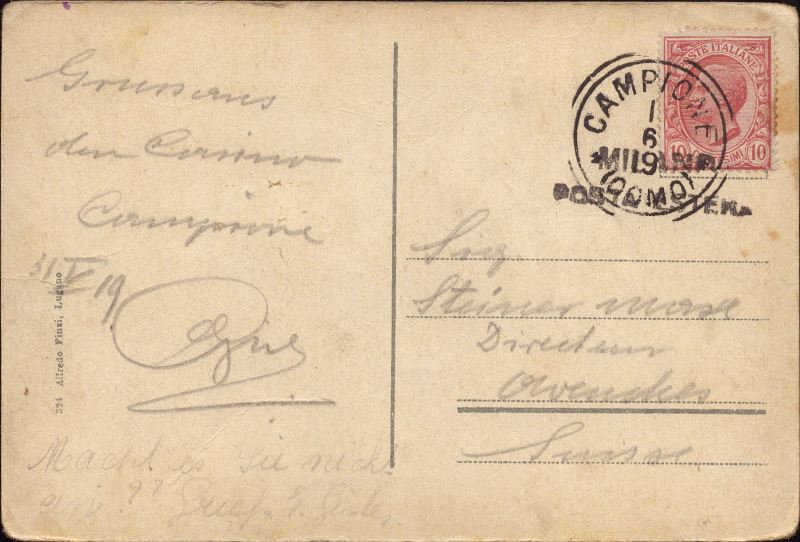 Gruss aus
den Casino
Campione
31 V 19
324 Alfredo Finzi, Lugano
Macht es Sie nicht
POSTE ITALIANE
10 10
CAMPIONE
1
6
19
(COMO)
MILANO
POSTA ESTERA
Sig.
Steiner Max
Directeur
Avenches
Suisse